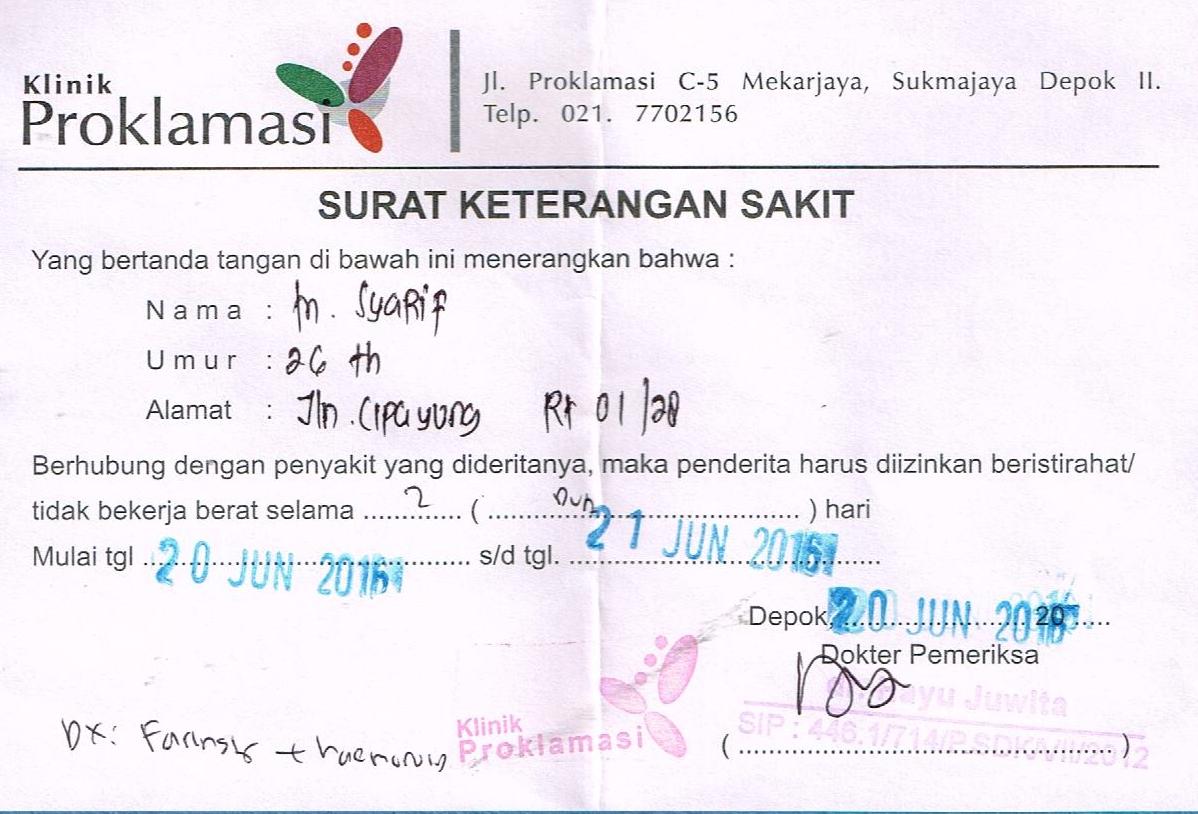 Klinik
Proklamasi
Jl. Proklamasi C-5 Mekarjaya, Sukmajaya Depok II.
Telp. 021. 7702156
SURAT KETERANGAN SAKIT
Yang bertanda tangan di bawah ini menerangkan bahwa :
Nama : M. Syarif
Umur : 26 th
Alamat : Jln. Cipayung Rt 01/28
Berhubung dengan penyakit yang dideritanya, maka penderita harus diizinkan beristirahat/
tidak bekerja berat selama 2 ( Dua ) hari
Mulai tgl 20 JUN 2016 s/d tgl. 21 JUN 2016
Depok, 20 JUN 2016 20
Dokter Pemeriksa
Bayu Juwita
SIP : 446.1/714/
Klinik
Proklamasi
DX: +